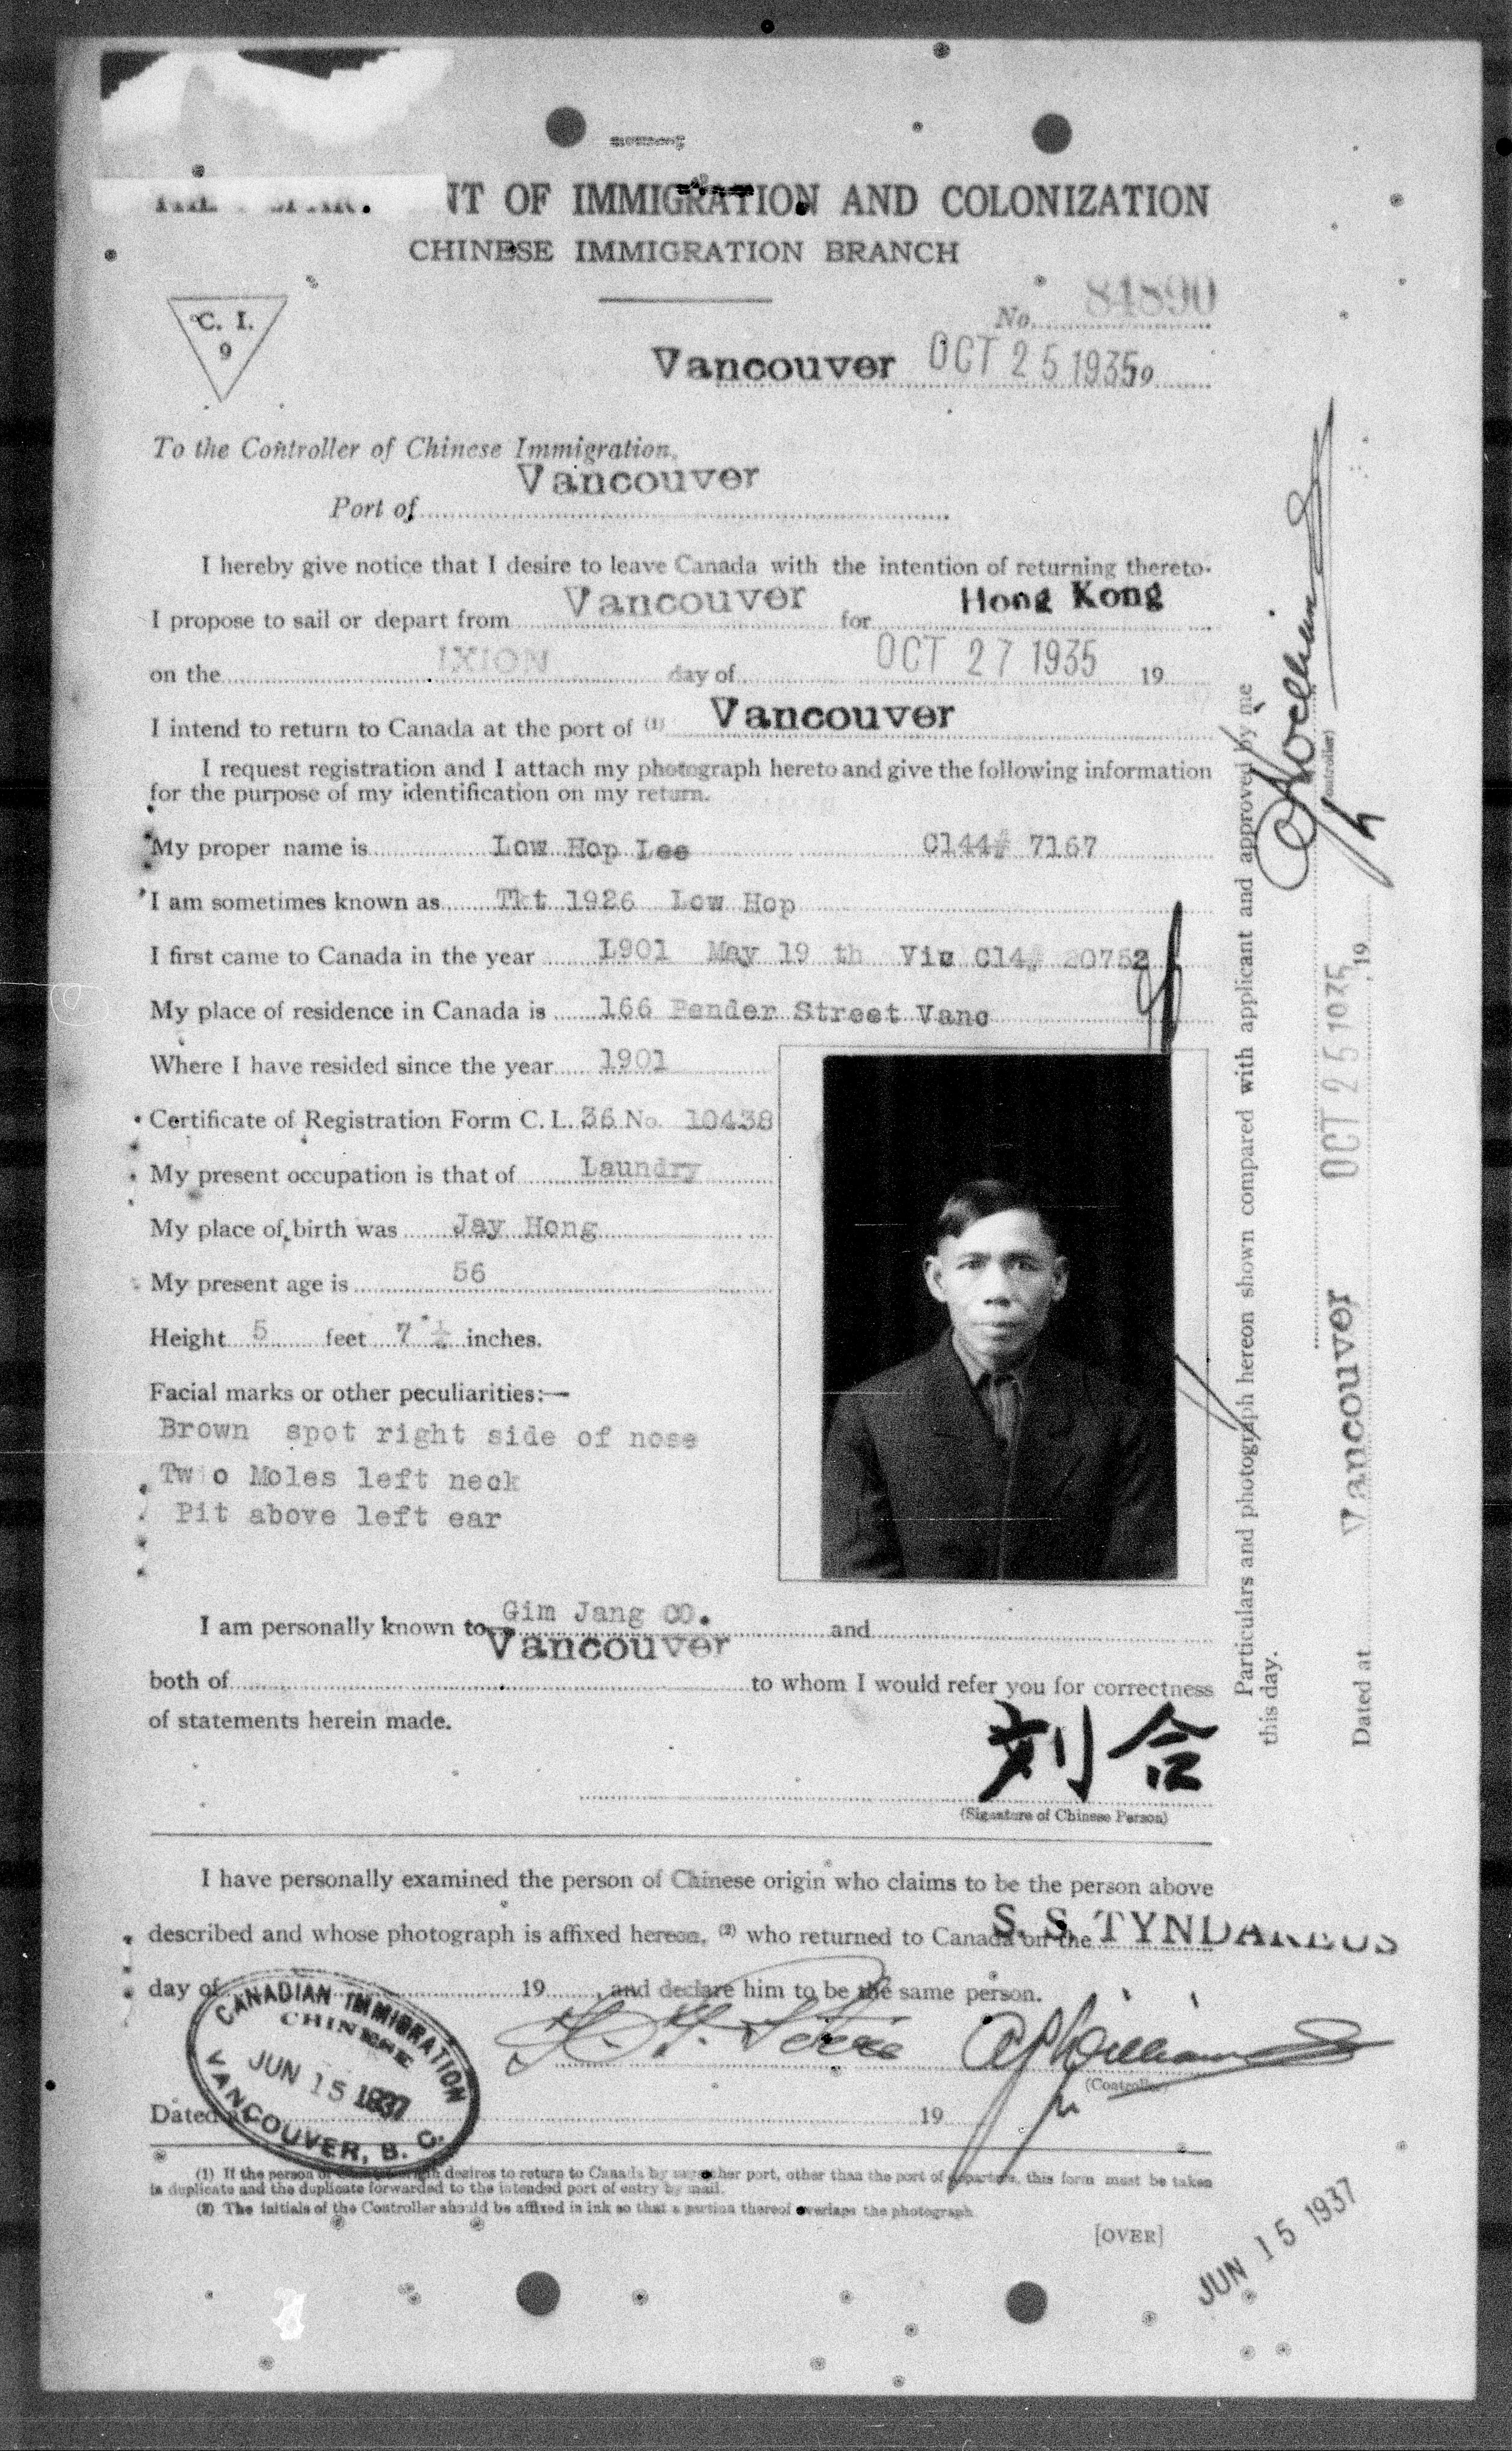 NT OF IMMIGRATION AND COLONIZATION
CHINESE IMMIGRATION BRANCH
C. I.
9
No. 84890
Vancouver OCT 25 1935 19
To the Controller of Chinese Immigration,
Vancouver
Port of
I hereby give notice that I desire to leave Canada with the intention of returning thereto.
I propose to sail or depart from Vancouver for Hong Kong
on the IXION day of OCT 27 1935 19
I intend to return to Canada at the port of (1) Vancouver
I request registration and I attach my photograph hereto and give the following information
for the purpose of my identification on my return.
My proper name is Low Hop Lee C144# 7167
I am sometimes known as Tkt 1926 Low Hop
I first came to Canada in the year 1901 May 19 th Vic C14# 20752
My place of residence in Canada is 166 Pender Street Vanc
Where I have resided since the year 1901
Certificate of Registration Form C. I. 36 No. 10438
My present occupation is that of Laundry
My place of birth was Jay Hong
My present age is 56
Height 5 feet 7 ½ inches.
Facial marks or other peculiarities:—
Brown spot right side of nose
Two Moles left neck
Pit above left ear
I am personally known to Gim Jang CO. and
Vancouver
both of to whom I would refer you for correctness
of statements herein made.
刘合
(Signature of Chinese Person)
I have personally examined the person of Chinese origin who claims to be the person above
described and whose photograph is affixed hereon, (2) who returned to Canada on the S. S. TYNDAREUS
day of 19 , and declare him to be the same person.
(Controller)
CANADIAN IMMIGRATION
CHINESE
JUN 15 1937
VANCOUVER, B. C.
Dated 19
(1) If the person of desires to return to Canada by another port, other than the port of departure, this form must be taken
in duplicate and the duplicate forwarded to the intended port of entry by mail.
(2) The initials of the Controller should be affixed in ink so that a portion thereof overlaps the photograph.
[OVER]
JUN 15 1937
Particulars and photograph hereon shown compared with applicant and approved by me
this day.
(Controller)
Dated at Vancouver OCT 25 1935 , 19